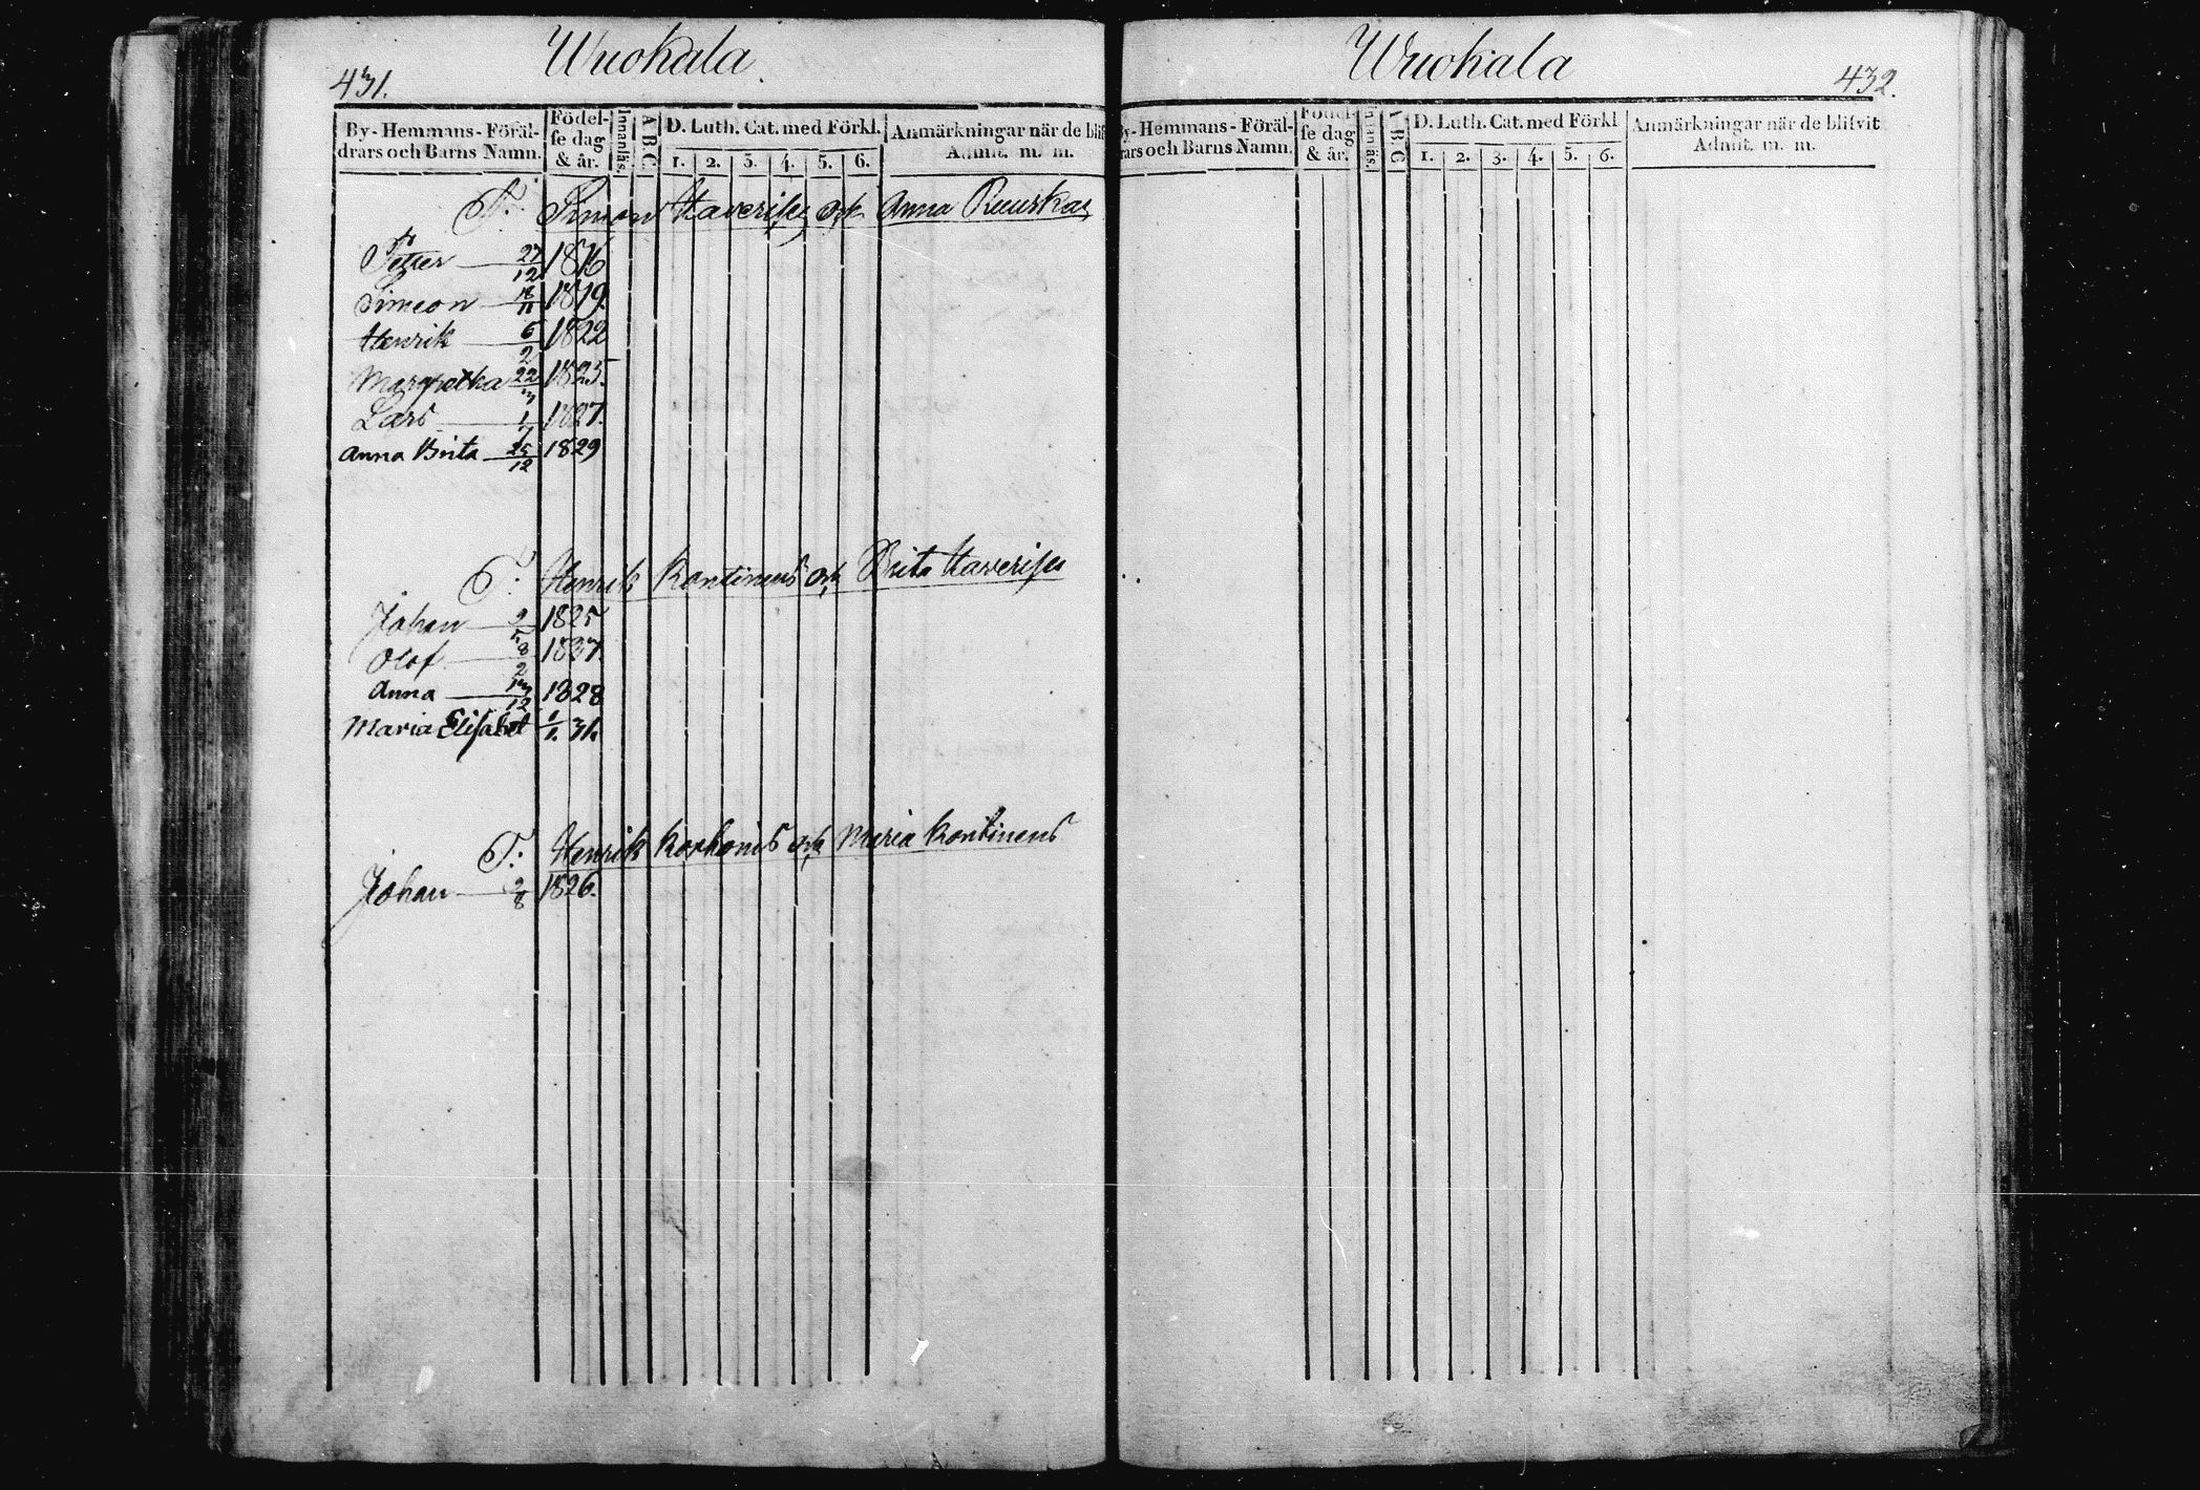 Wuokala.
431.
By-Hemmans-Föräl-
drars och Barns Namn.
Födel-
se dag
& år.
Innanläs.
A B C
D. Luth. Cat. med Förkl.
1. 2. 3. 4. 5. 6.
Anmärkningar när de blif
Admit. m. m.
T. Simon Kaverises och Anna Ruuskas
Petter 27/12 1816
Simeon 18/11 1819.
Henrik 6/2 1822
Margretha 22/3 1825.
Lars 1/7 1827.
Anna Brita 25/12 1829
T: Henrik Kontinens och Brita Kaverises
Johan 2/5 1825
Olof 8/2 1837.
Anna 13/12 1828
Maria Elisabet 1/1. 31.
T: Henrik Korhonens och Maria Kontinens
Johan 2/8 1826.
Wuokala
432.
By-Hemmans-Föräl-
rars och Barns Namn.
Födel-
se dag
& år.
Innanläs.
A B C
D. Luth. Cat. med Förkl
1. 2. 3. 4. 5. 6.
Anmärkningar när de blifvit
Admit. m. m.